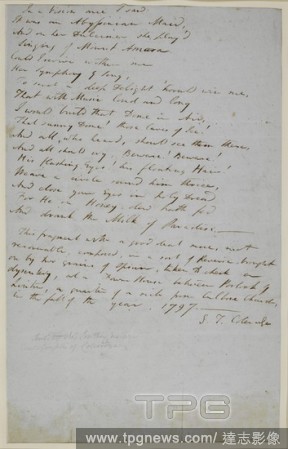 In a Vision once I saw:
It was an Abyssinian Maid,
And on her Dulcimer she play'd
Singing of Mount Amara
Could I revive within me
Her Symphony & Song,
To such a deep Delight 'twould win me,
That with Music loud and long
I would build that Dome in Air,
That sunny Dome! those Caves of Ice!
And all, who heard, should see them there,
And all should cry, Beware! Beware!
His flashing Eyes! his floating Hair!
Weave a circle round him thrice,
And close your Eyes in holy Dread:
For He on Honey-dew hath fed
And drank the Milk of Paradise.—
This fragment with a good deal more, not
recoverable, composed, in a sort of Reverie brought
on by two grains of Opium, taken to check a
dysentery, at a Farm House between Porlock &
Linton, a quarter of a mile from Culbone Church,
in the fall of the year, 1797.
S. T. Coleridge
TPG
www.tpgnews.com / 達志影像